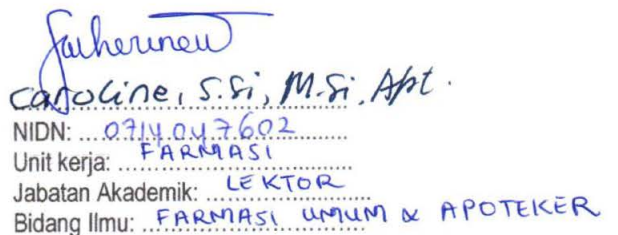 Caroline, S.Si, M.Si, Apt.
NIDN: 0714047602
Unit kerja: FARMASI
Jabatan Akademik: LEKTOR
Bidang Ilmu: FARMASI UMUM & APOTEKER